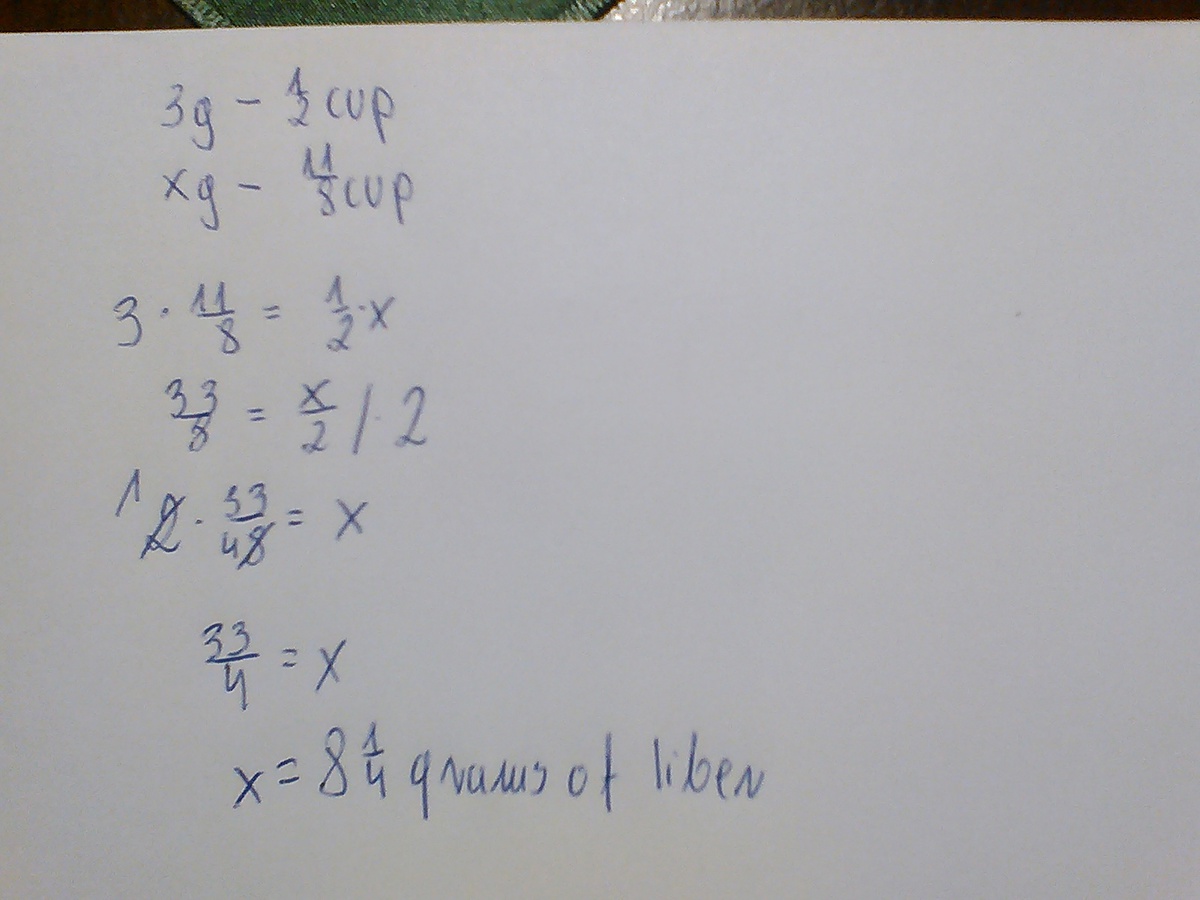 3g - 1/2 cup
xg - 11/8 cup
3 · 11/8 = 1/2 · x
33/8 = x/2 / · 2
1 2 · 33/48 = x
33/4 = x
x = 8 1/4 grams of liber